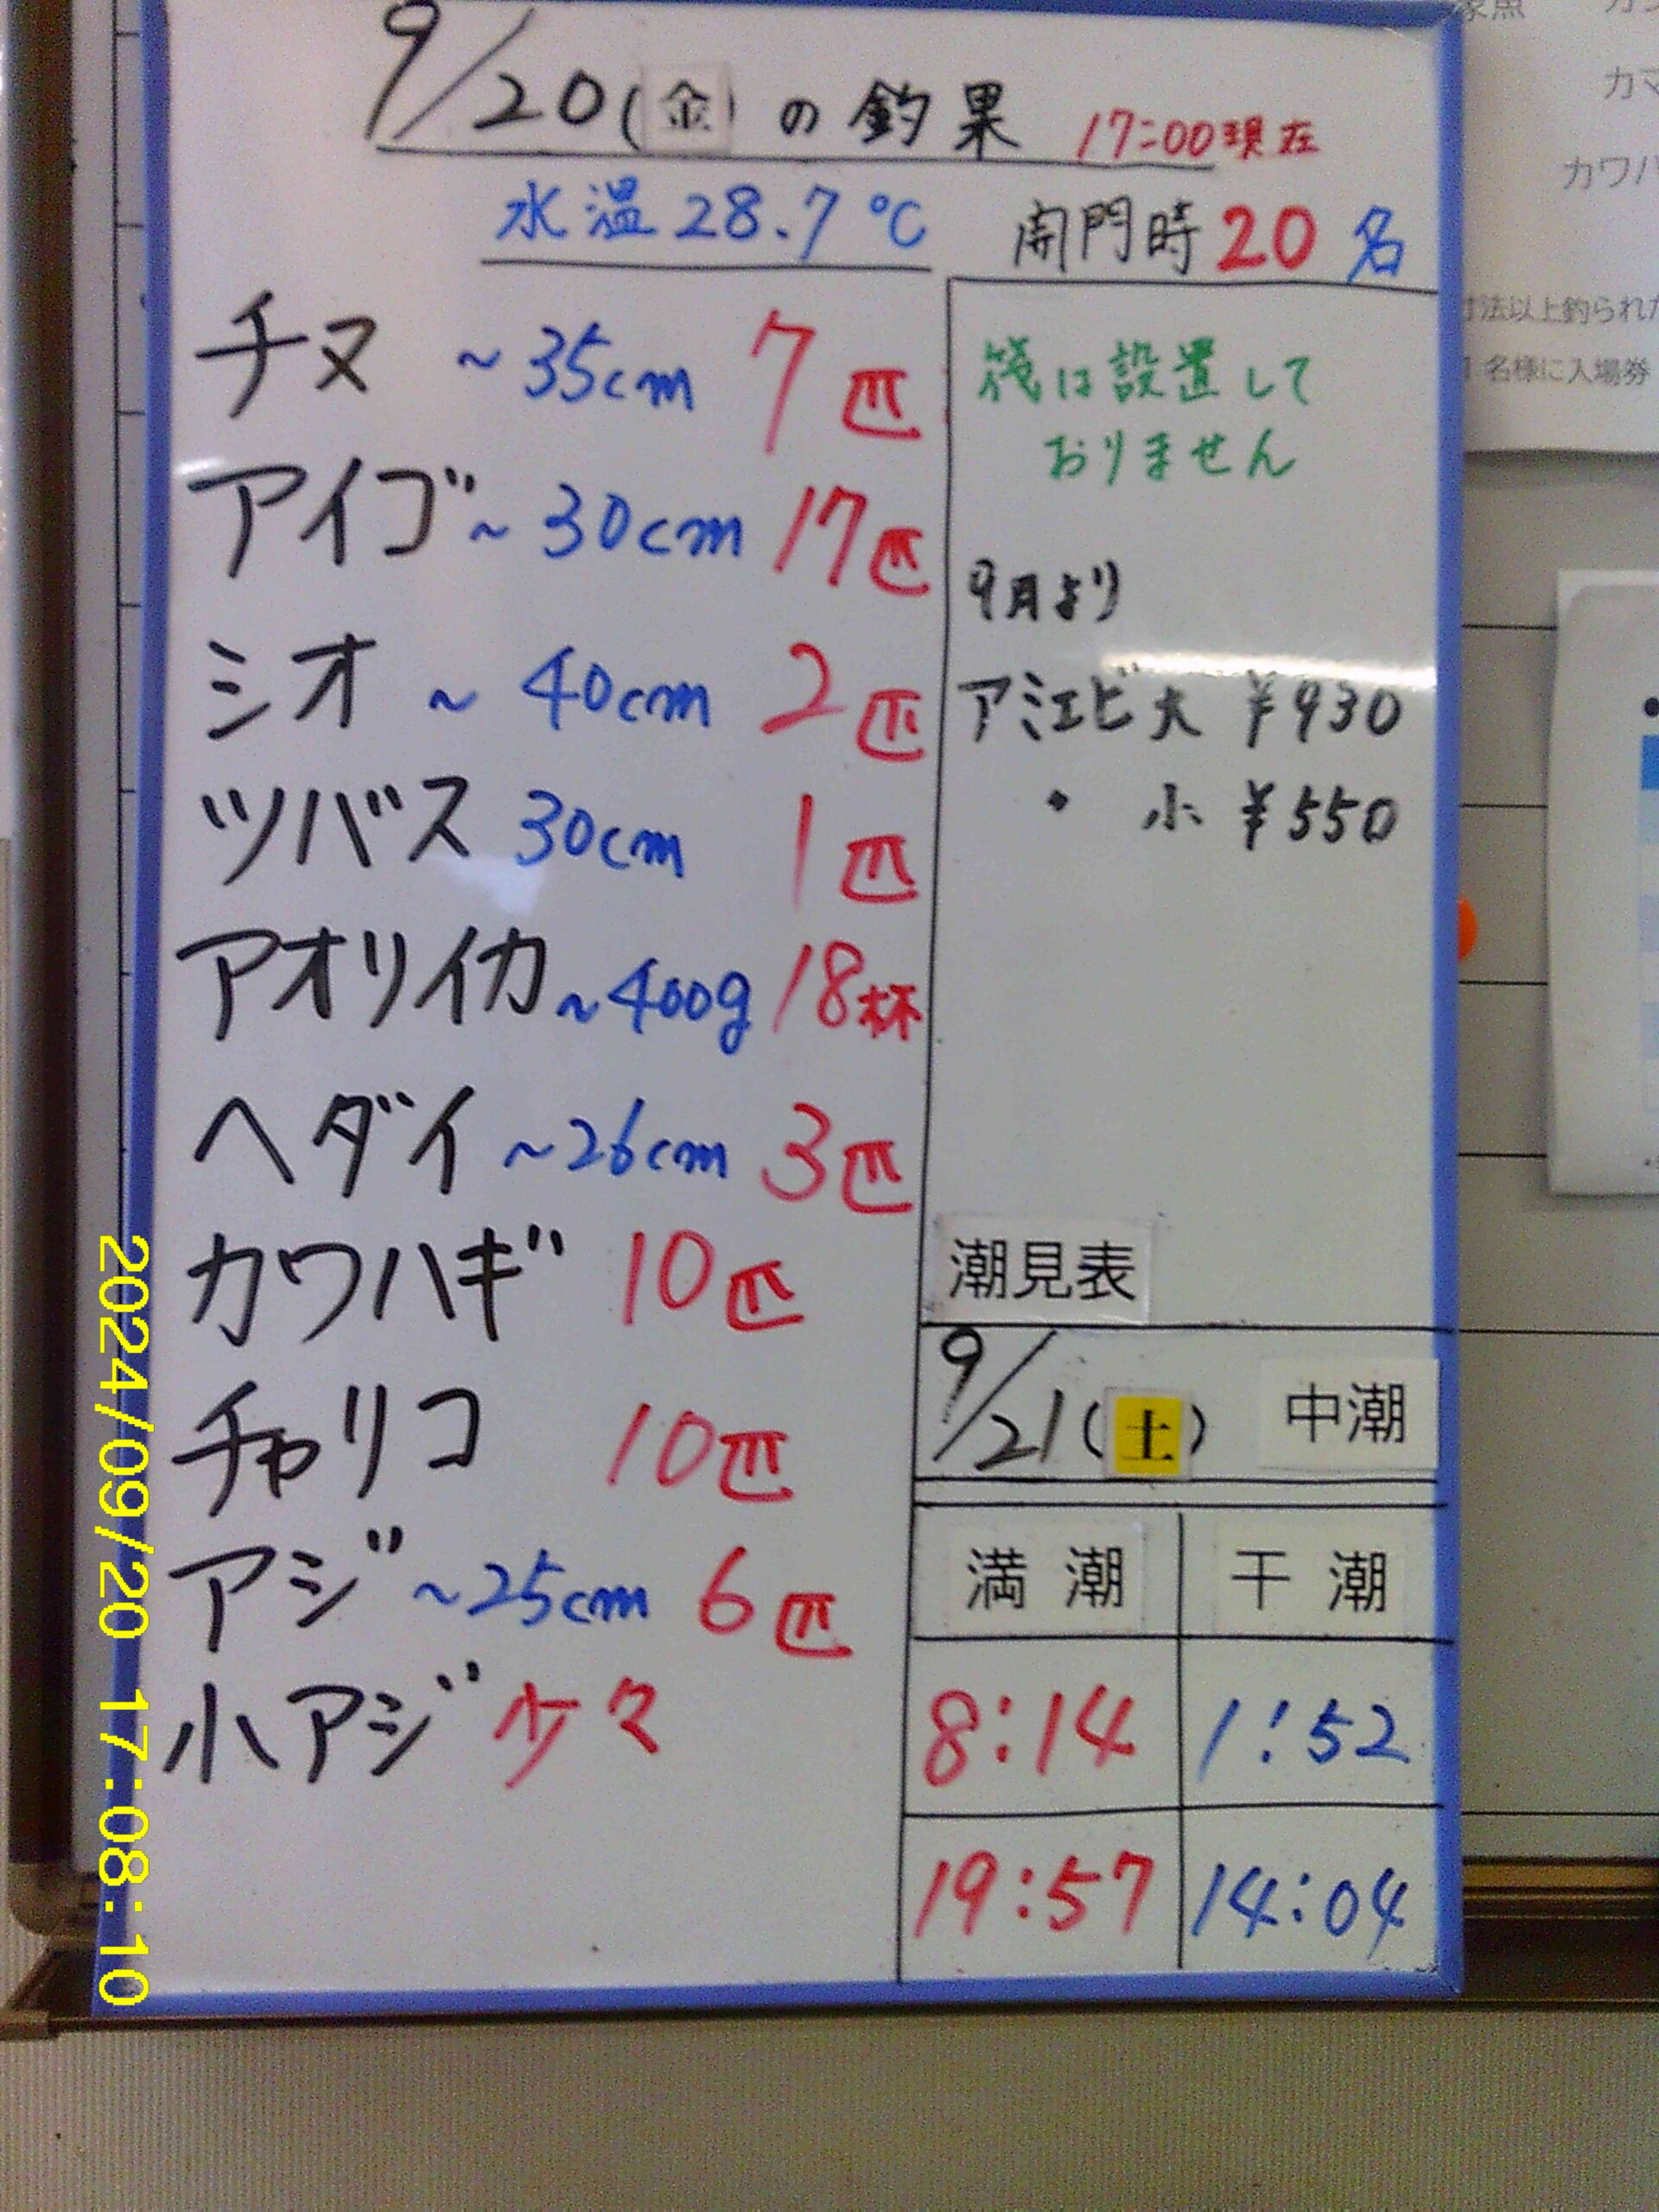 9/20(金)の釣果 17:00現在
水温28.7℃ 開門時20名
チヌ ～35cm 7匹
アイゴ ～30cm 17匹
シオ ～40cm 2匹
ツバス 30cm 1匹
アオリイカ ～400g 18杯
ヘダイ ～26cm 3匹
カワハギ 10匹
チャリコ 10匹
アジ ～25cm 6匹
小アジ 少々
筏は設置して
おりません
9月より
アミエビ大 ¥930
・ 小 ¥550
潮見表
9/21(土) 中潮
満潮 干潮
8:14 1:52
19:57 14:04
寸法以上釣られた
1名様に入場券
カマ
カワハ
2024/09/20 17:08:10